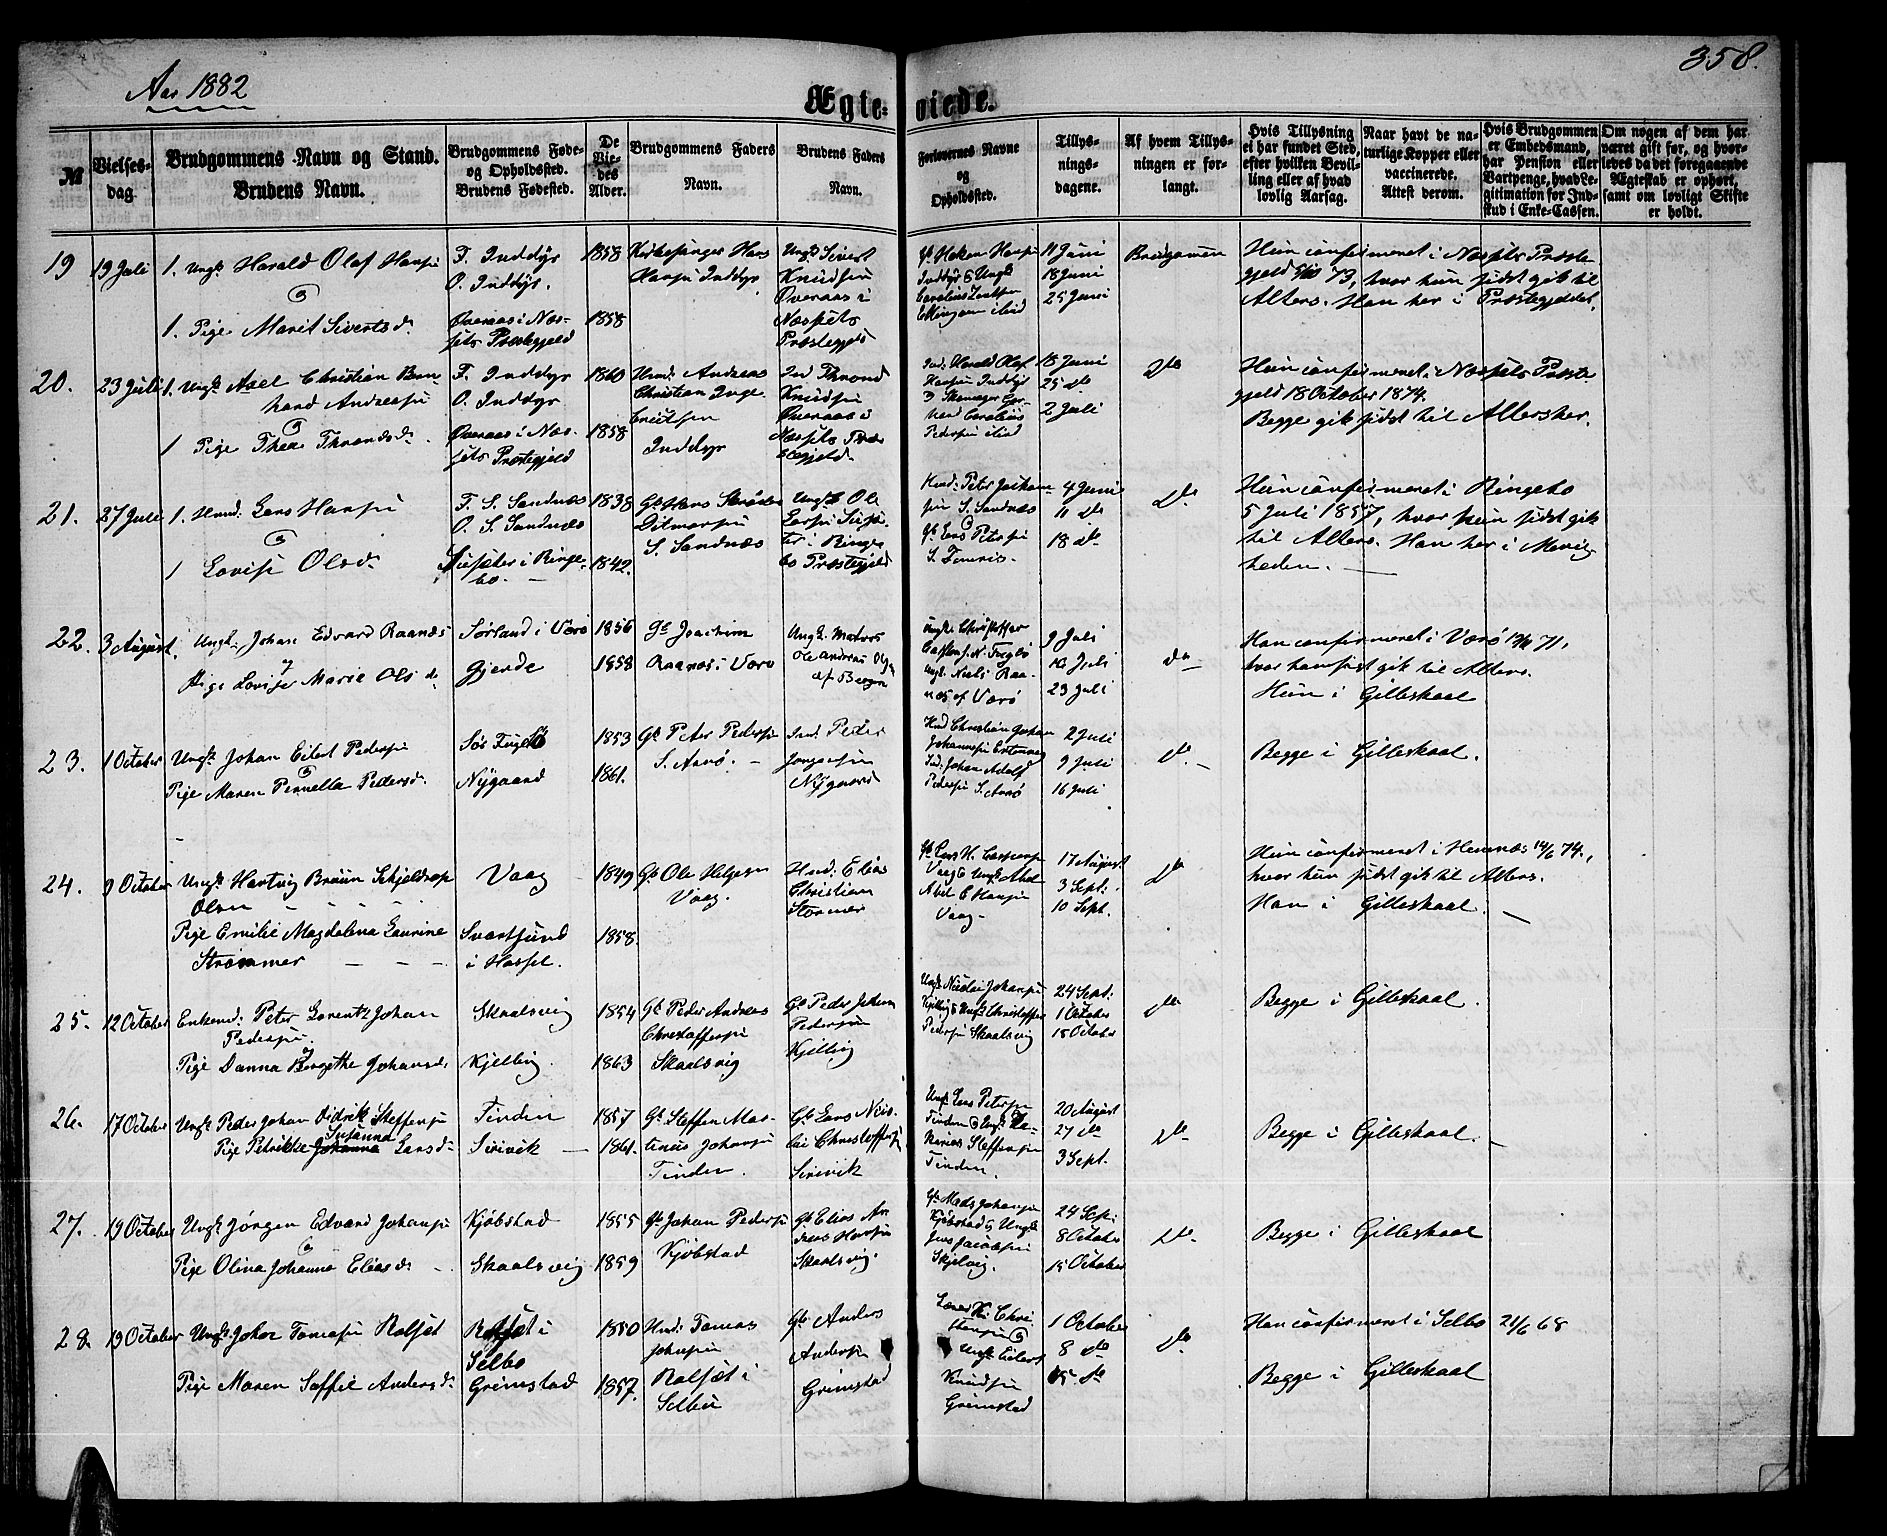 Aar 1882
358.
Ægteviede.
№
Vielsesdag.
Brudgommens Navn og Stand.
Brudens Navn.
Brudgommens Føde-
og Opholdssted.
Brudens Fødested.
De
Vie-
des
Alder.
Brudgommens Faders
Navn.
Brudens Faders
Navn.
Forlovernes Navne
og
Opholdssted.
Tillys-
nings-
dagene.
Af hvem Tillys-
ningen er for-
langt.
Hvis Tillysning
ei har fundet Sted,
efter hvilken Bevil-
ling eller af hvad
lovlig Aarsag.
Naar havt de na-
turlige Kopper eller
vaccinerede.
Attest derom.
Hvis Brudgommen
er Embedsmand,
har Pension eller
Vartpenge, hvad Le-
gitimation for Ind-
skud i Enke-Cassen.
Om nogen af dem har
været gift før, og hvor-
ledes da det foregaaende
Ægteskab er ophørt,
samt om lovligt Skifte
er holdt.
19
19 Juli
1. Ungk. Harald Olaf Hansen
1. Pige Marit Sivertsd.
F. Inddyr
O. Inddyr.
Øveraas i Næs-
sets Præstegjeld
1858
1858
Kirkesanger Hans
Hansen Inddyr
Sivert
Knudsen
Øveraas i
Næssets
Præstegjeld
Haken Hansen
Inddyr & Ungk.
11 Juni
18 Juni
25 Juni
Brudgommen
Hun confirmeret i Næssets Præste-
gjeld 73, hvor hun sidst gik til
Alters. Han her i Præstegjeldet.
20.
23 Juli
1. Ungk. Axel Christian Bern-
hard Andreasen
1 Pige Thea Throndsd.
F. Inddyr
O. Inddyr
Øveraas i Næs-
sets Præstegjeld
1860
1858
Hmd. Andreas
Christian
Inddyr
Ind Thrond
Knudsen
Øveraas i
Næssets Præ-
stegjeld.
Ind. Harald Olaf
Hansen Inddyr
18 Juni
25 do
2 Juli
do
Hun confirmeret i Næssets Præste-
gjeld 18 October 1874.
Begge gik sidst til Alters her.
21.
27 Juli
1. Hmd. Lars Hansen
1 Lovise Olsd.
F. S. Sandnæs
O. S. Sandnæs
i Ringe-
bo.
1838
1842.
Gb. Hans
Ditmarsen
S. Sandnæs
Ungk. Ole
Larsen
i Ringe-
bo Præstegjeld
Hmd. Peter Joakim-
sen S. Sandnæs
Gb. Lars Petersen
4 Juni
11 do
18 do
do
Hun confirmeret i Ringebo
5 Juli 1857, hvor hun sidst gik
til Alters. Han her i Menig-
heden.
22.
3 August.
Ungk. Johan Edvard Raanæs
Pige Lovise Marie Olsd.
Sørland i Værø
Gjerde
1856
1858
Gb Joachim
Raanæs i Værø
Ungk.
Ole Andreas
af Bergen
Ungk. Christoffer
Ungk. Niels Raa-
næs af Værø
9 Juli
16 Juli
23 Juli
do
Han confirmeret i Værø 71,
hvor han sidst gik til Alters.
Hun i Gilleskaal
23.
1 October
Ungk. Johan Eilert Pedersen
Pige Maren Pernella Pedersd.
Sør Fugelø
Nygaard
1853
1861.
Gb. Peter Pedersen
S. Arnø.
Ind. Peder
Nygaard
Hmd Christian Johan
Ind. Johan Adolf
Pedersen S. Arnø
2 Juli
9 Juli
16 Juli
do
Begge i Gilleskaal.
24.
9 October
Ungk. Hartvig Bruun Schjeldrup
Olsen
Pige Emilie Magdalena Laurine
Strømmer
Vaag
Svartsund
i Hassel.
1849
1858.
Gb. Ole Helgesen
Vaag.
Hmd. Elias
Christian
Stormer
Vaag & Ungk.
Vaag.
17 August
3 Sept.
10 Sept.
do
Hun confirmeret i Hemnæs 74,
hvor hun sidst gik til Alters.
Han i Gilleskaal.
25.
12 October
Enkemd. Peter Lorentz Johan
Pedersen
Pige Danna Bergethe Johansd.
Skaalsvig
Kjelling
1854
1863
Gb Peder Andreas
Christoffersen
Skaalsvig
Gb Peder Johan
Pedersen
Kjelling
Ungk. Nicolai Johansen
Kjelling & Ungk. Christoffer
Pedersen Skaalsvig
24 Sept.
1 October
15 October
do
Begge i Gilleskaal.
26.
17 October
Ungk. Peder Johan Didrik Steffensen
Susanna
Pige Petrikke Johanna Larsd.
Finden
Sirivik
1857
1861.
Gb. Steffen Mar-
tinus Johansen
Finden.
Gb. Lars Nico-
lai Christoffersen
Sirivik
Ungk. Lars Petersen
Finden & Ungk.
Steffensen
Finden.
20 August
27 do
3 Sept.
do
Begge i Gilleskaal.
27.
19 October
Ungk. Jørgen Edvard Johansen
Pige Olina Johanna Eliasd.
Kjøbstad
Skaalsvig
1855
1859
Gb. Johan Pedersen
Kjøbstad
Gb. Elias An-
dreas Hansen
Skaalsvig.
Gb. Mads Johansen
Kjøbstad & Ungk.
Jens Jacobsen
Skjelvig.
24 Sep.
8 October
15 October
do
Begge i Gilleskaal
28.
19 October
Ungk. Johan Tomesen Rolset
Pige Maren Soffie Andersd.
Rolset i
Selbo
Grimstad
1850
1857.
Hmd. Tomas
Johnsen
Rolset i
Selbu
Gb. Anders
Andersen
Grimstad
Chri-
stensen &
Ungk. Eilert
Knudsen
Grimstad
1 October
8 do
15 do
do
Han confirmeret i Selbo 21/6 68
Begge i Gilleskaal